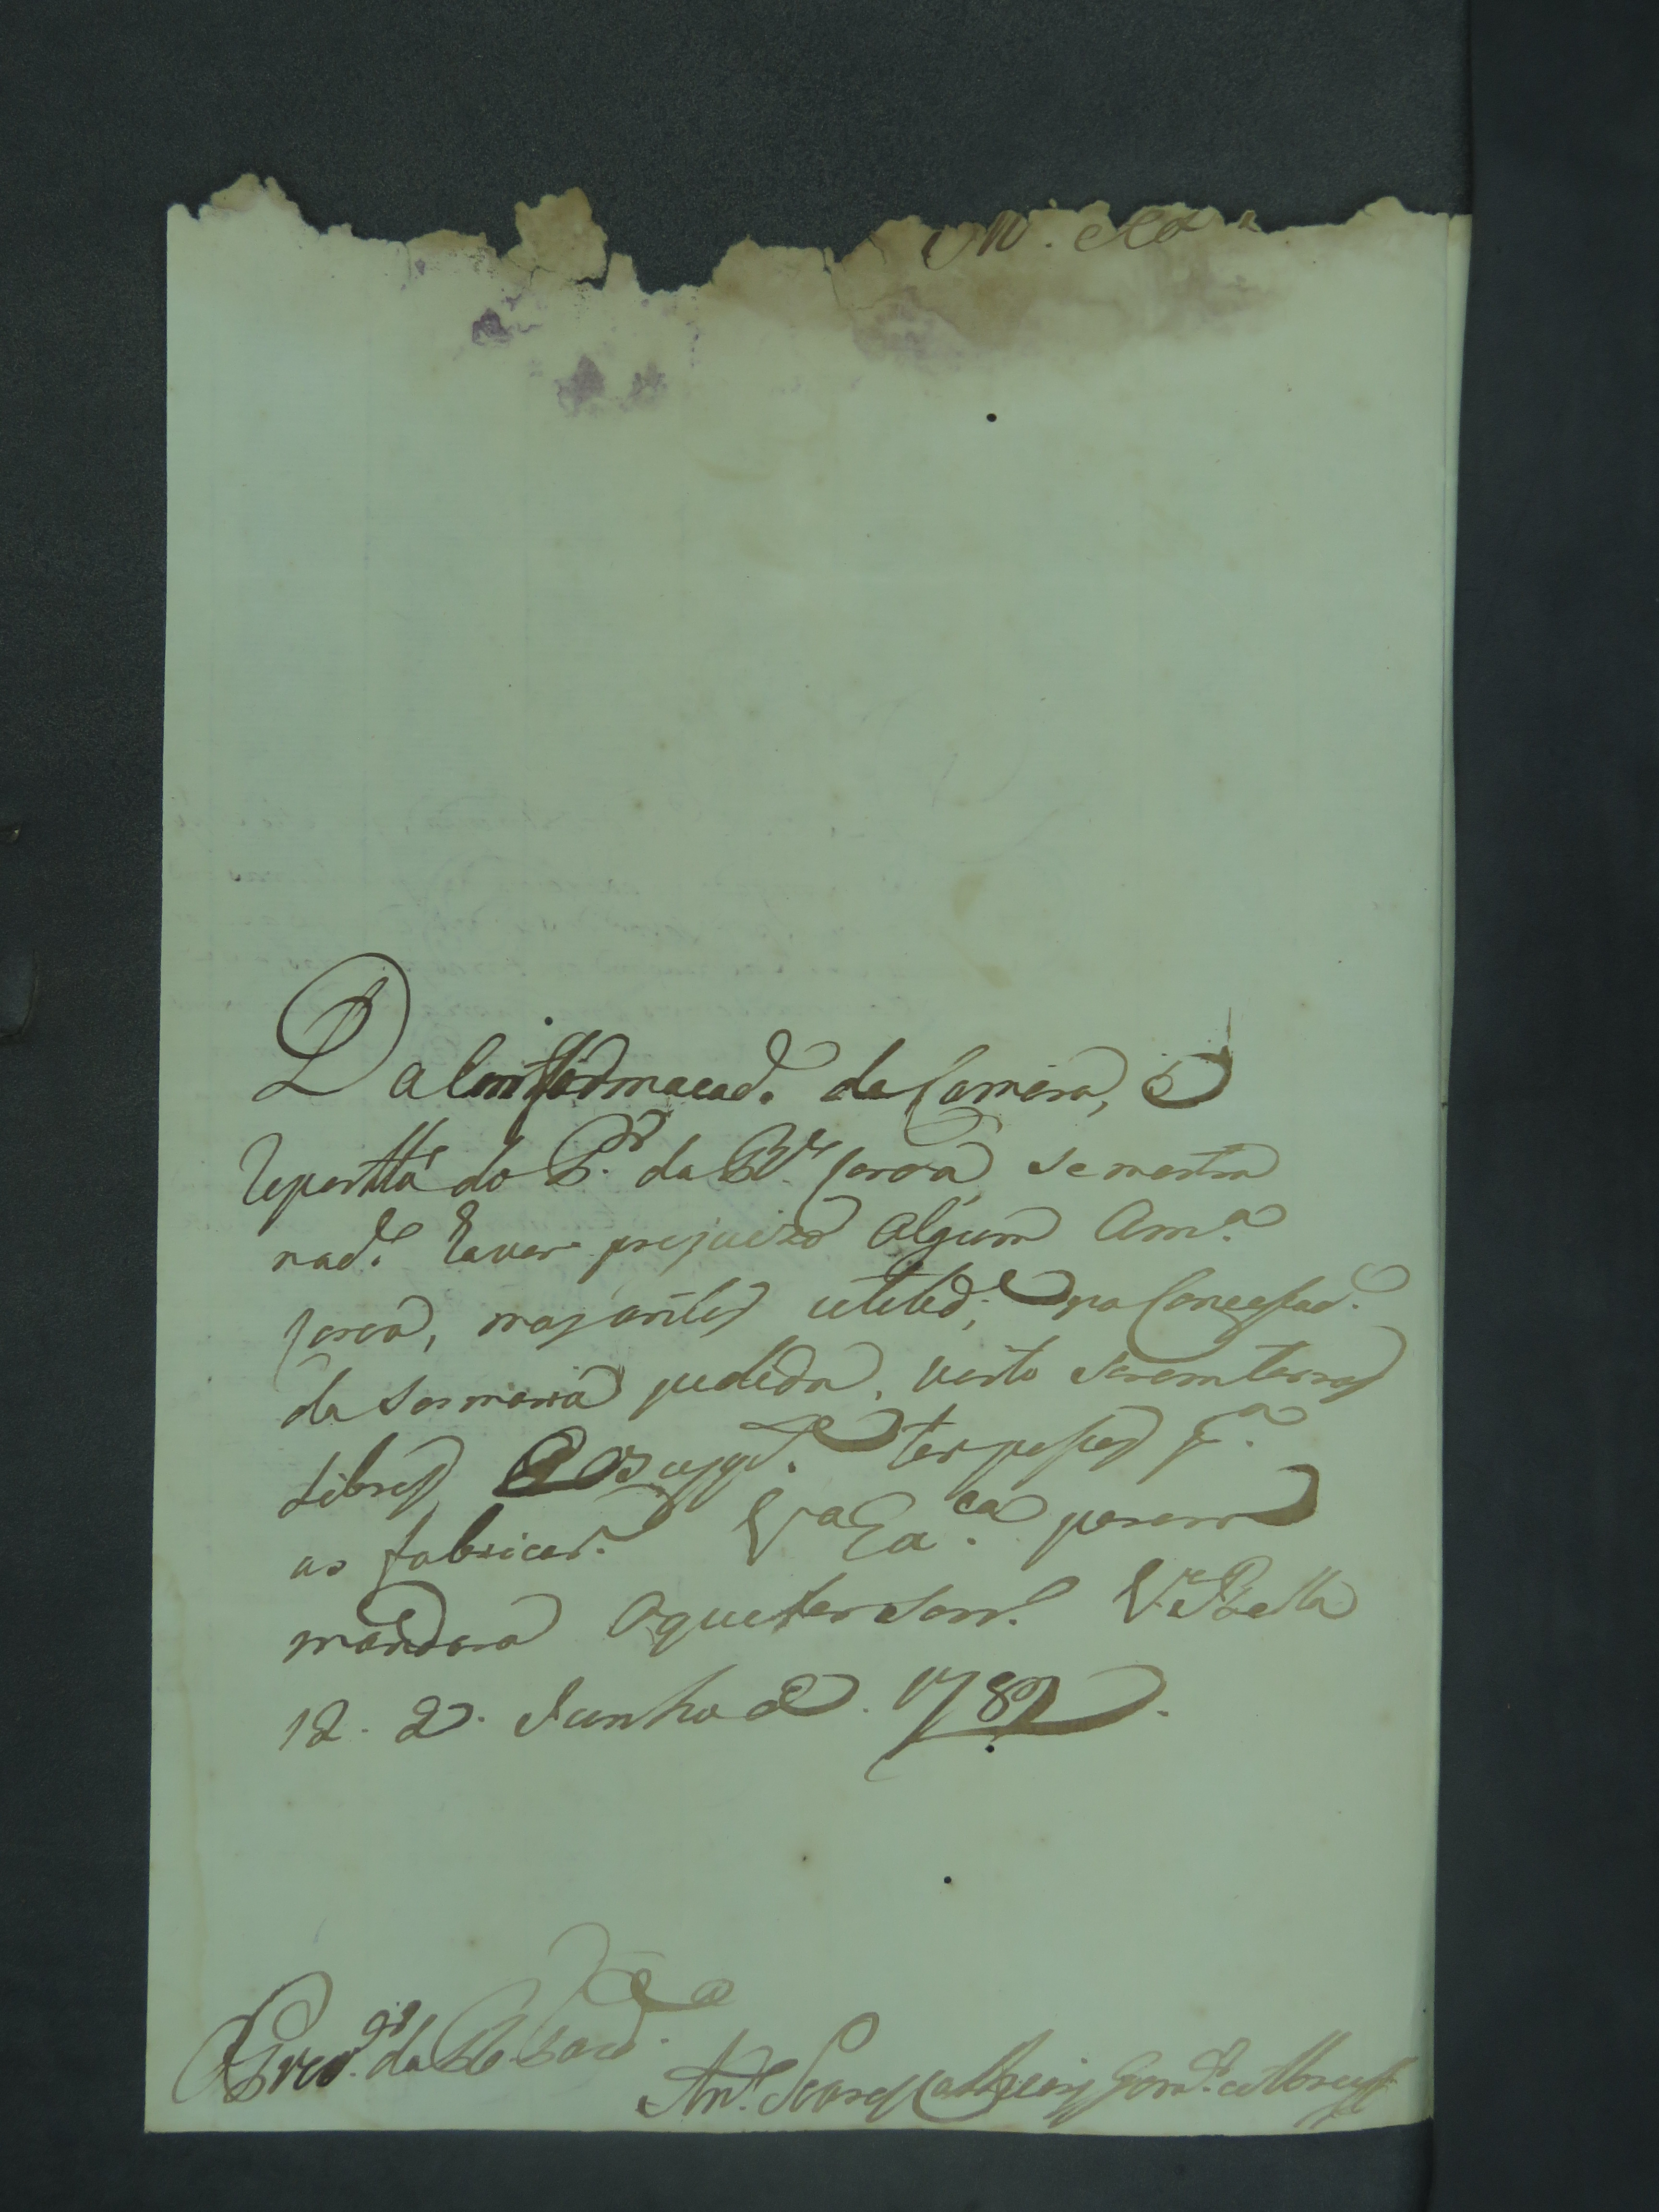 Da Conformacaõ. da Camera, e
repostta do P.or da R.l Coroa, se mostra
naõ. haver prejuizo algum a m.ma
Coroa, mas antes utilid.e, na Concessaõ.
da sesmaria pedida, visto serem terras
Libres, e os supp.es ter posses p.a
as fabricar. V.a Ex.ca porem
mandara o que for serv.o V.a Bella
12. de. Junho de. 1782.
O Prov.or da R.l Faz.da
Ant.o Soares Calheiros Gomes de Abreu